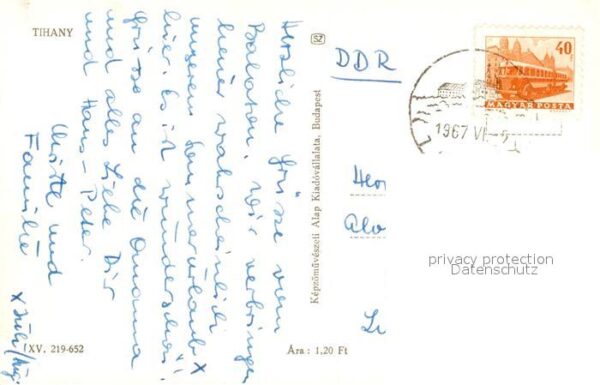 TIHANY
Herzliche Grüsse vom
Balaton. Wir verbringen
heuer wahrscheinlich
unseren Sommerurlaub x
hier. Es ist wunderschön!
Grüsse an die Omama
und alles Liebe Dir
und Hans-Peter.
und
Familie
x Juli/Aug.
XV. 219-652
SZ
Képzőművészeti Alap Kiadóvállalata, Budapest
Ára: 1,20 Ft
DDR
40
MAGYAR POSTA
1967 VI
privacy protection
Datenschutz